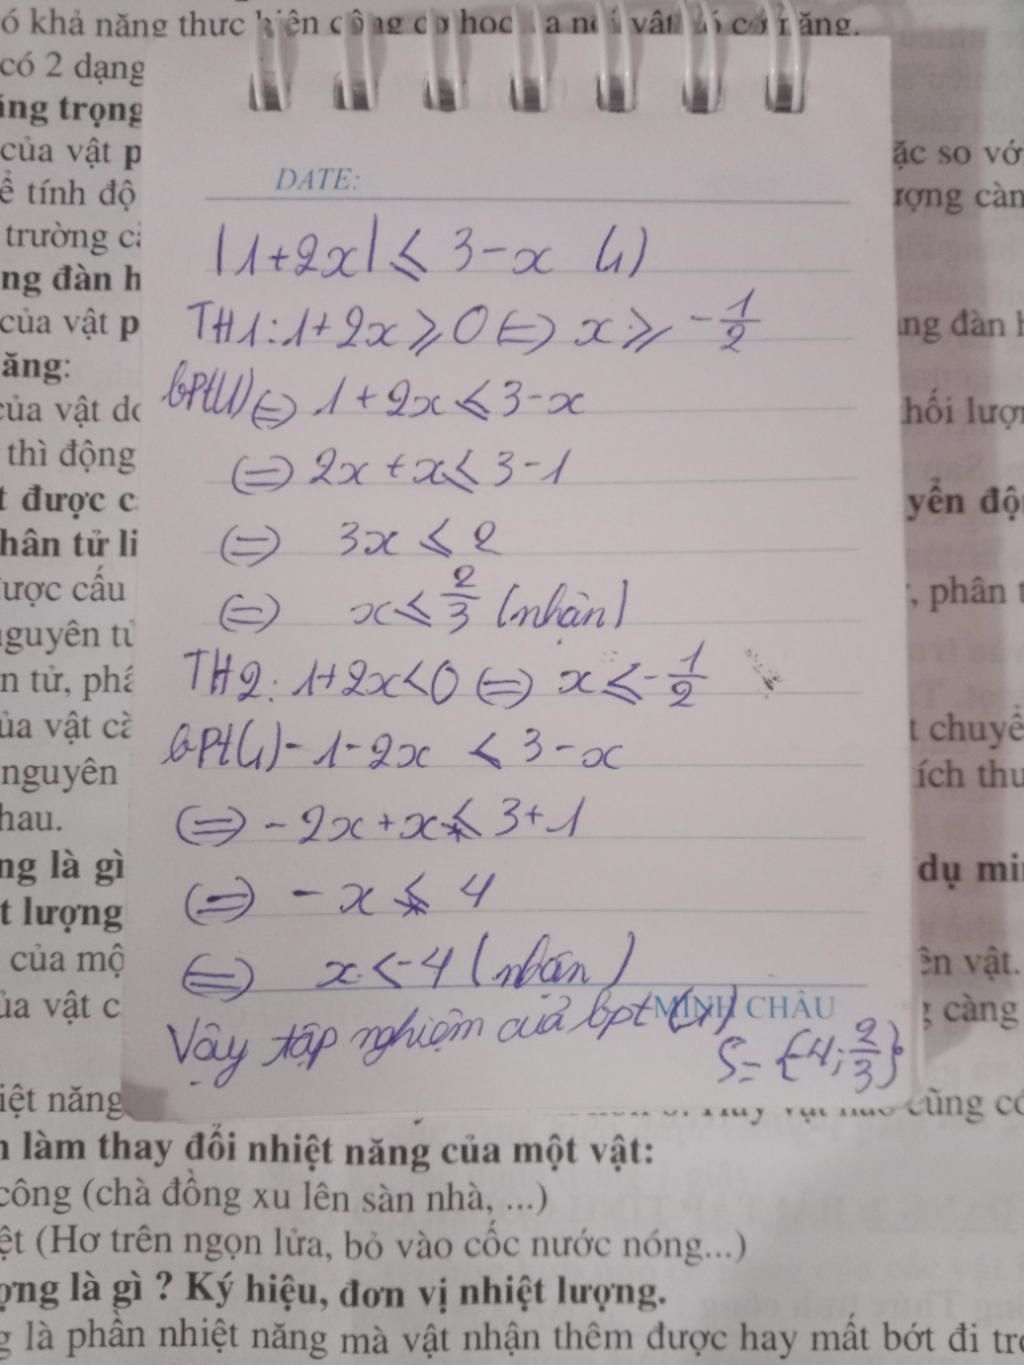 ó khả năng thực hiện công cơ học ta nói vật đó có cơ năng.
có 2 dạng
ăng trọng
của vật p
ặc so vớ
ể tính độ
ượng càn
trường cà
ng đàn h
của vật p
ng đàn h
ăng:
của vật do
hối lượn
thì động
t được c
yển độ
hân tử li
ược cấu
, phân t
nguyên tử
n tử, phâ
ủa vật cà
t chuyể
nguyên
ích thư
hau.
ng là gì
dụ mi
t lượng
của mộ
ên vật.
ủa vật c
g càng
DATE:
|1+2x| ⩽ 3-x (1)
TH1: 1+2x ⩾ 0 (=) x ⩾ -1/2
bpt(1) (=) 1+2x ⩽ 3-x
(=) 2x+x ⩽ 3-1
(=) 3x ⩽ 2
(=) x ⩽ 2/3 (nhận)
TH2: 1+2x < 0 (=) x ⩽ -1/2
bpt(1) -1-2x ⩽ 3-x
(=) -2x+x ⩽ 3+1
(=) -x ⩽ 4
(=) x < -4 (nhận)
MINH CHÂU
Vậy tập nghiệm của bpt (1)
S= {-4; 2/3}
iệt năng
cũng có
n làm thay đổi nhiệt năng của một vật:
công (chà đồng xu lên sàn nhà, ...)
ệt (Hơ trên ngọn lửa, bỏ vào cốc nước nóng...)
ợng là gì ? Ký hiệu, đơn vị nhiệt lượng.
g là phần nhiệt năng mà vật nhận thêm được hay mất bớt đi tro